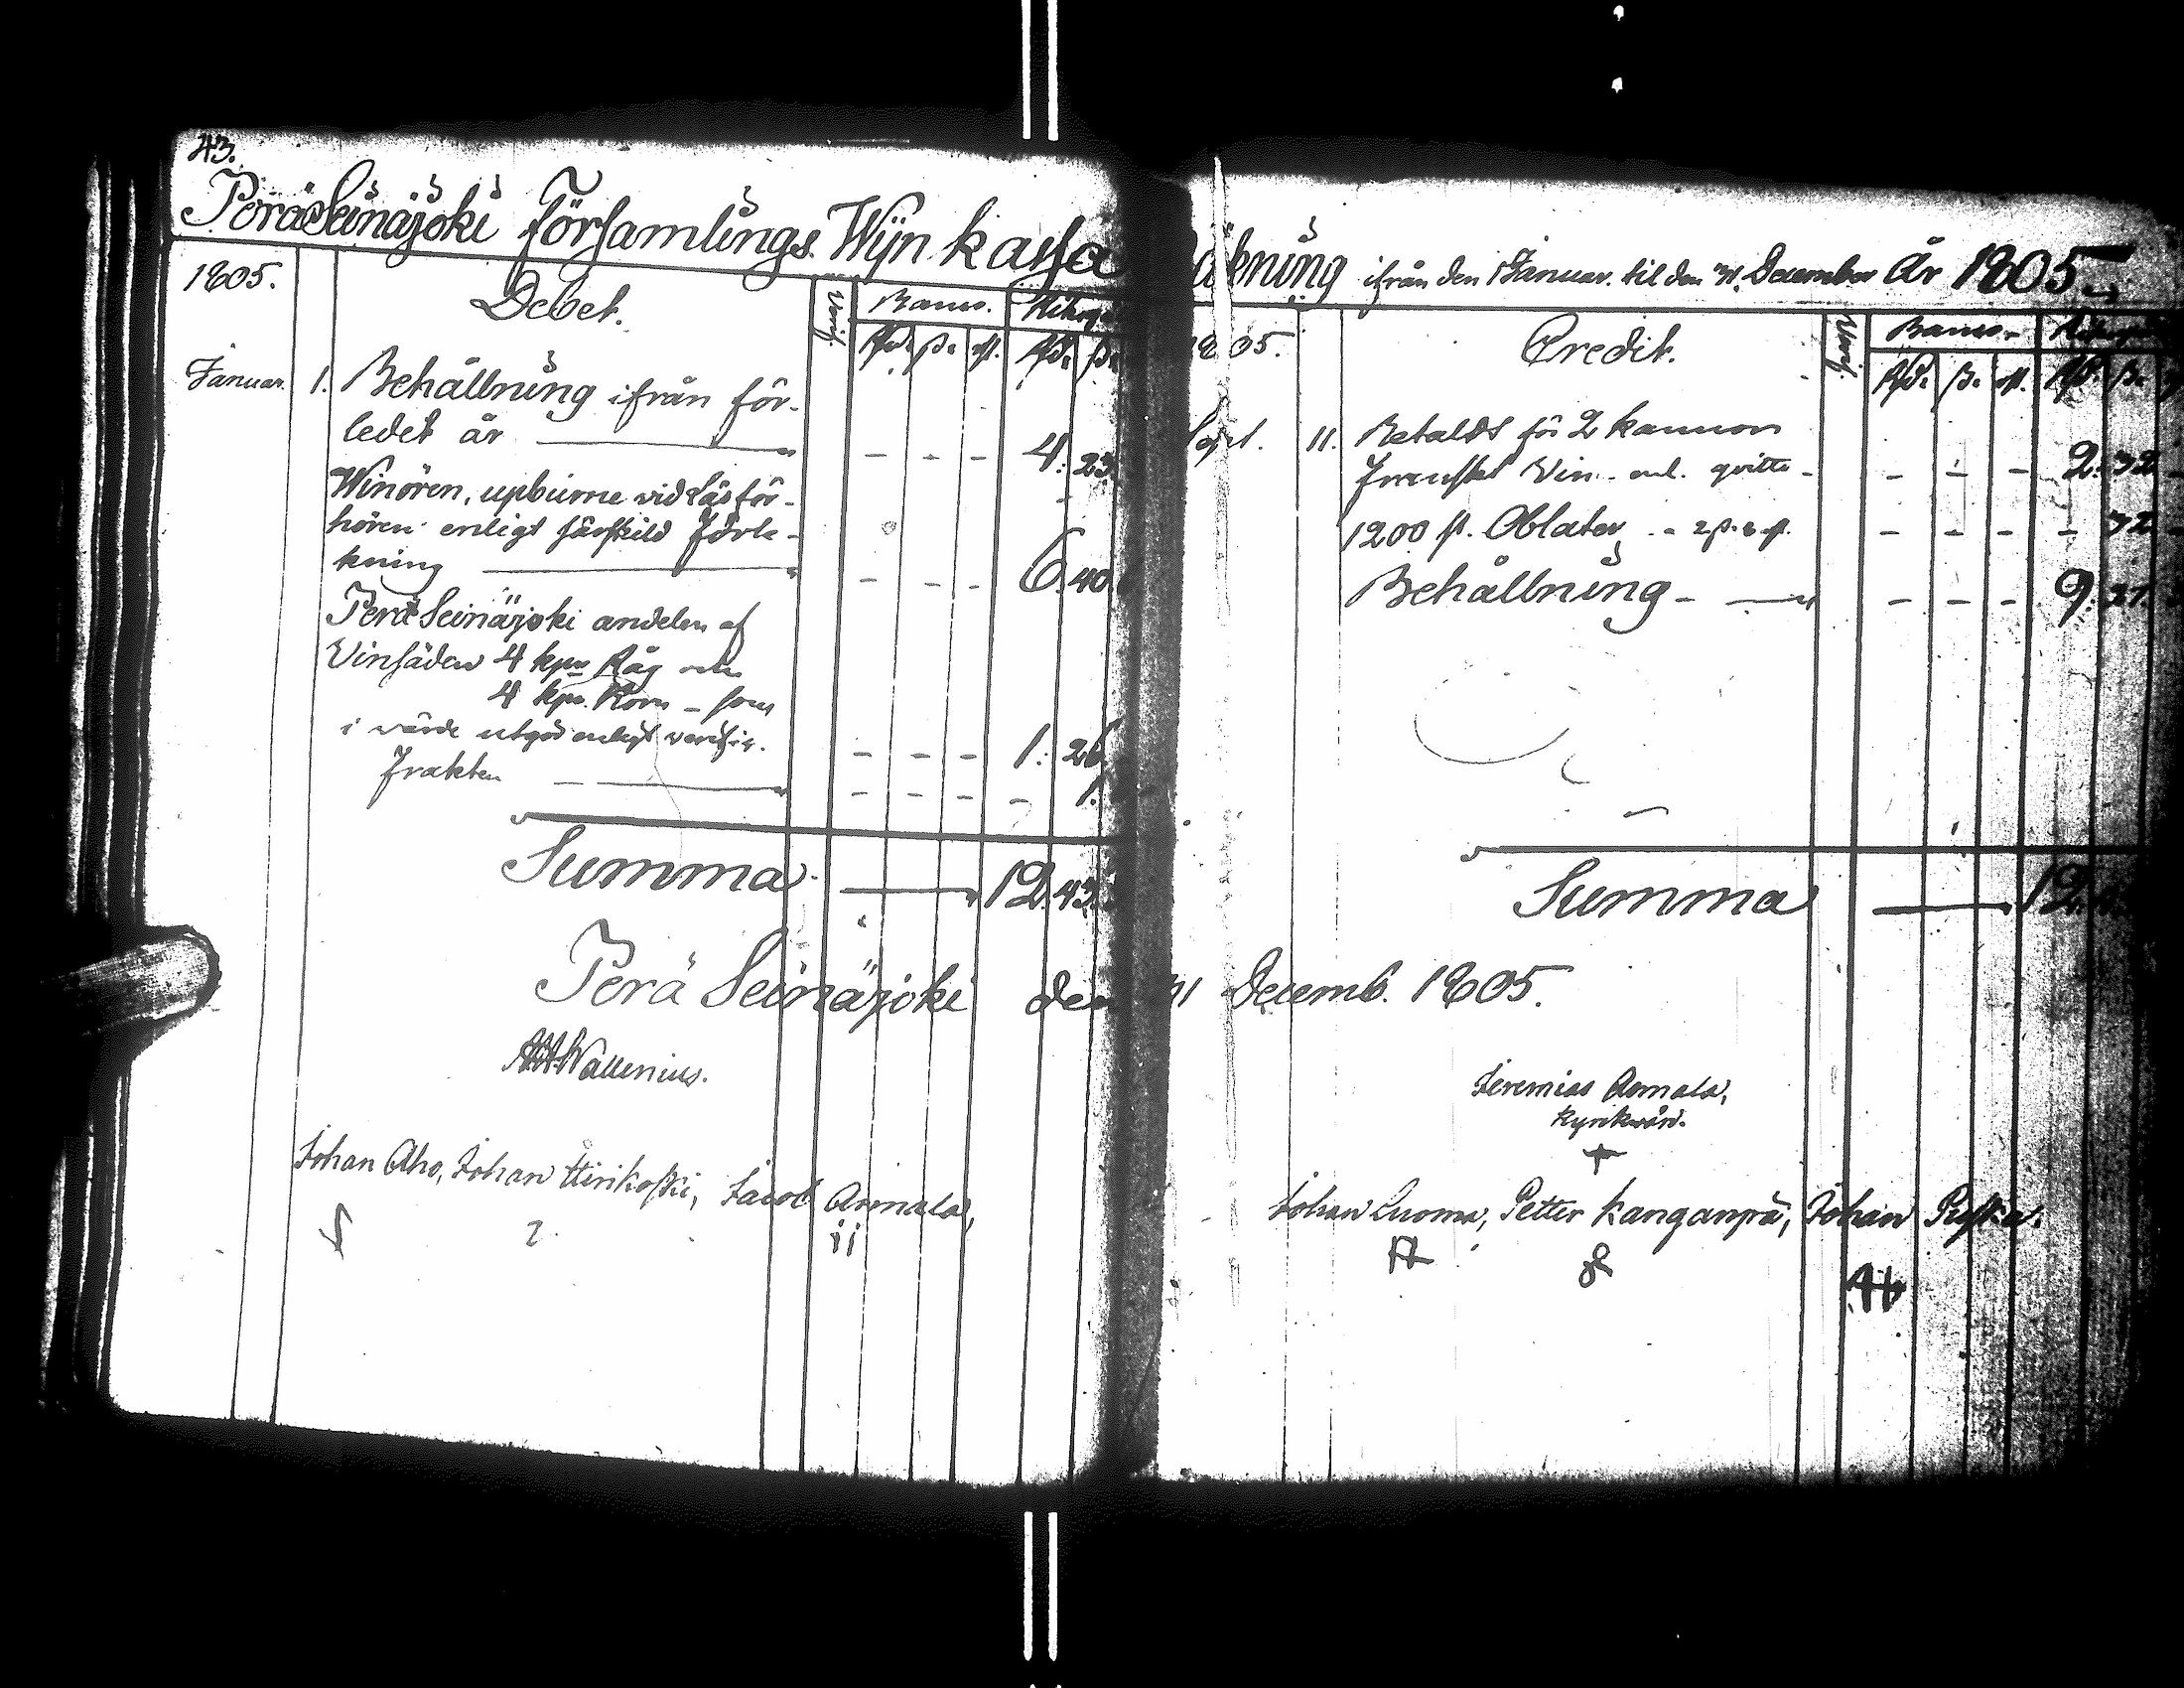 43.
Peräseinäjoki Församlings Wijn kassa Räkning ifrån den 1 Januar. til den 31. December År 1805.
1805.
Debet.
Verif.
Banco. Riksg.
Rd. ß. rst. Rd. ß.
Januar. 1. Behållning ifrån för-
ledet år — - - - 4: 23.
Winören, upburne vid Läsför-
hören enligt särskild förte-
kning — - - - 6. 40.
Perä Seinäjoki andelen af
Vinsäden 4 kpr Råg och
4 kpr. Korn - som
i värde utgör enligt verific. - - - 1: 26
Frakten — - - - - 1.
Summa — 12. 43.
1805.
Credit.
Verif.
Banco. Riksg.
Rd. ß. rst. Rd. ß.
Sept. 11. Betaldt för 2 kannor
Franskt Vin enl. qvitto - - - - 2. 32
1200 st. Oblater - - - - 32
Behållning - — - - - 9. 21.
Summa — 12.
Perä Seinäjoki den 31 Decemb. 1805.
Wallenius.
Jeremias Annala,
Kyrkvärd.
Johan Aho, Johan Hirikoski, Jacob Annala,
Johan Luoma, Petter Kanganpä, Johan Puska.